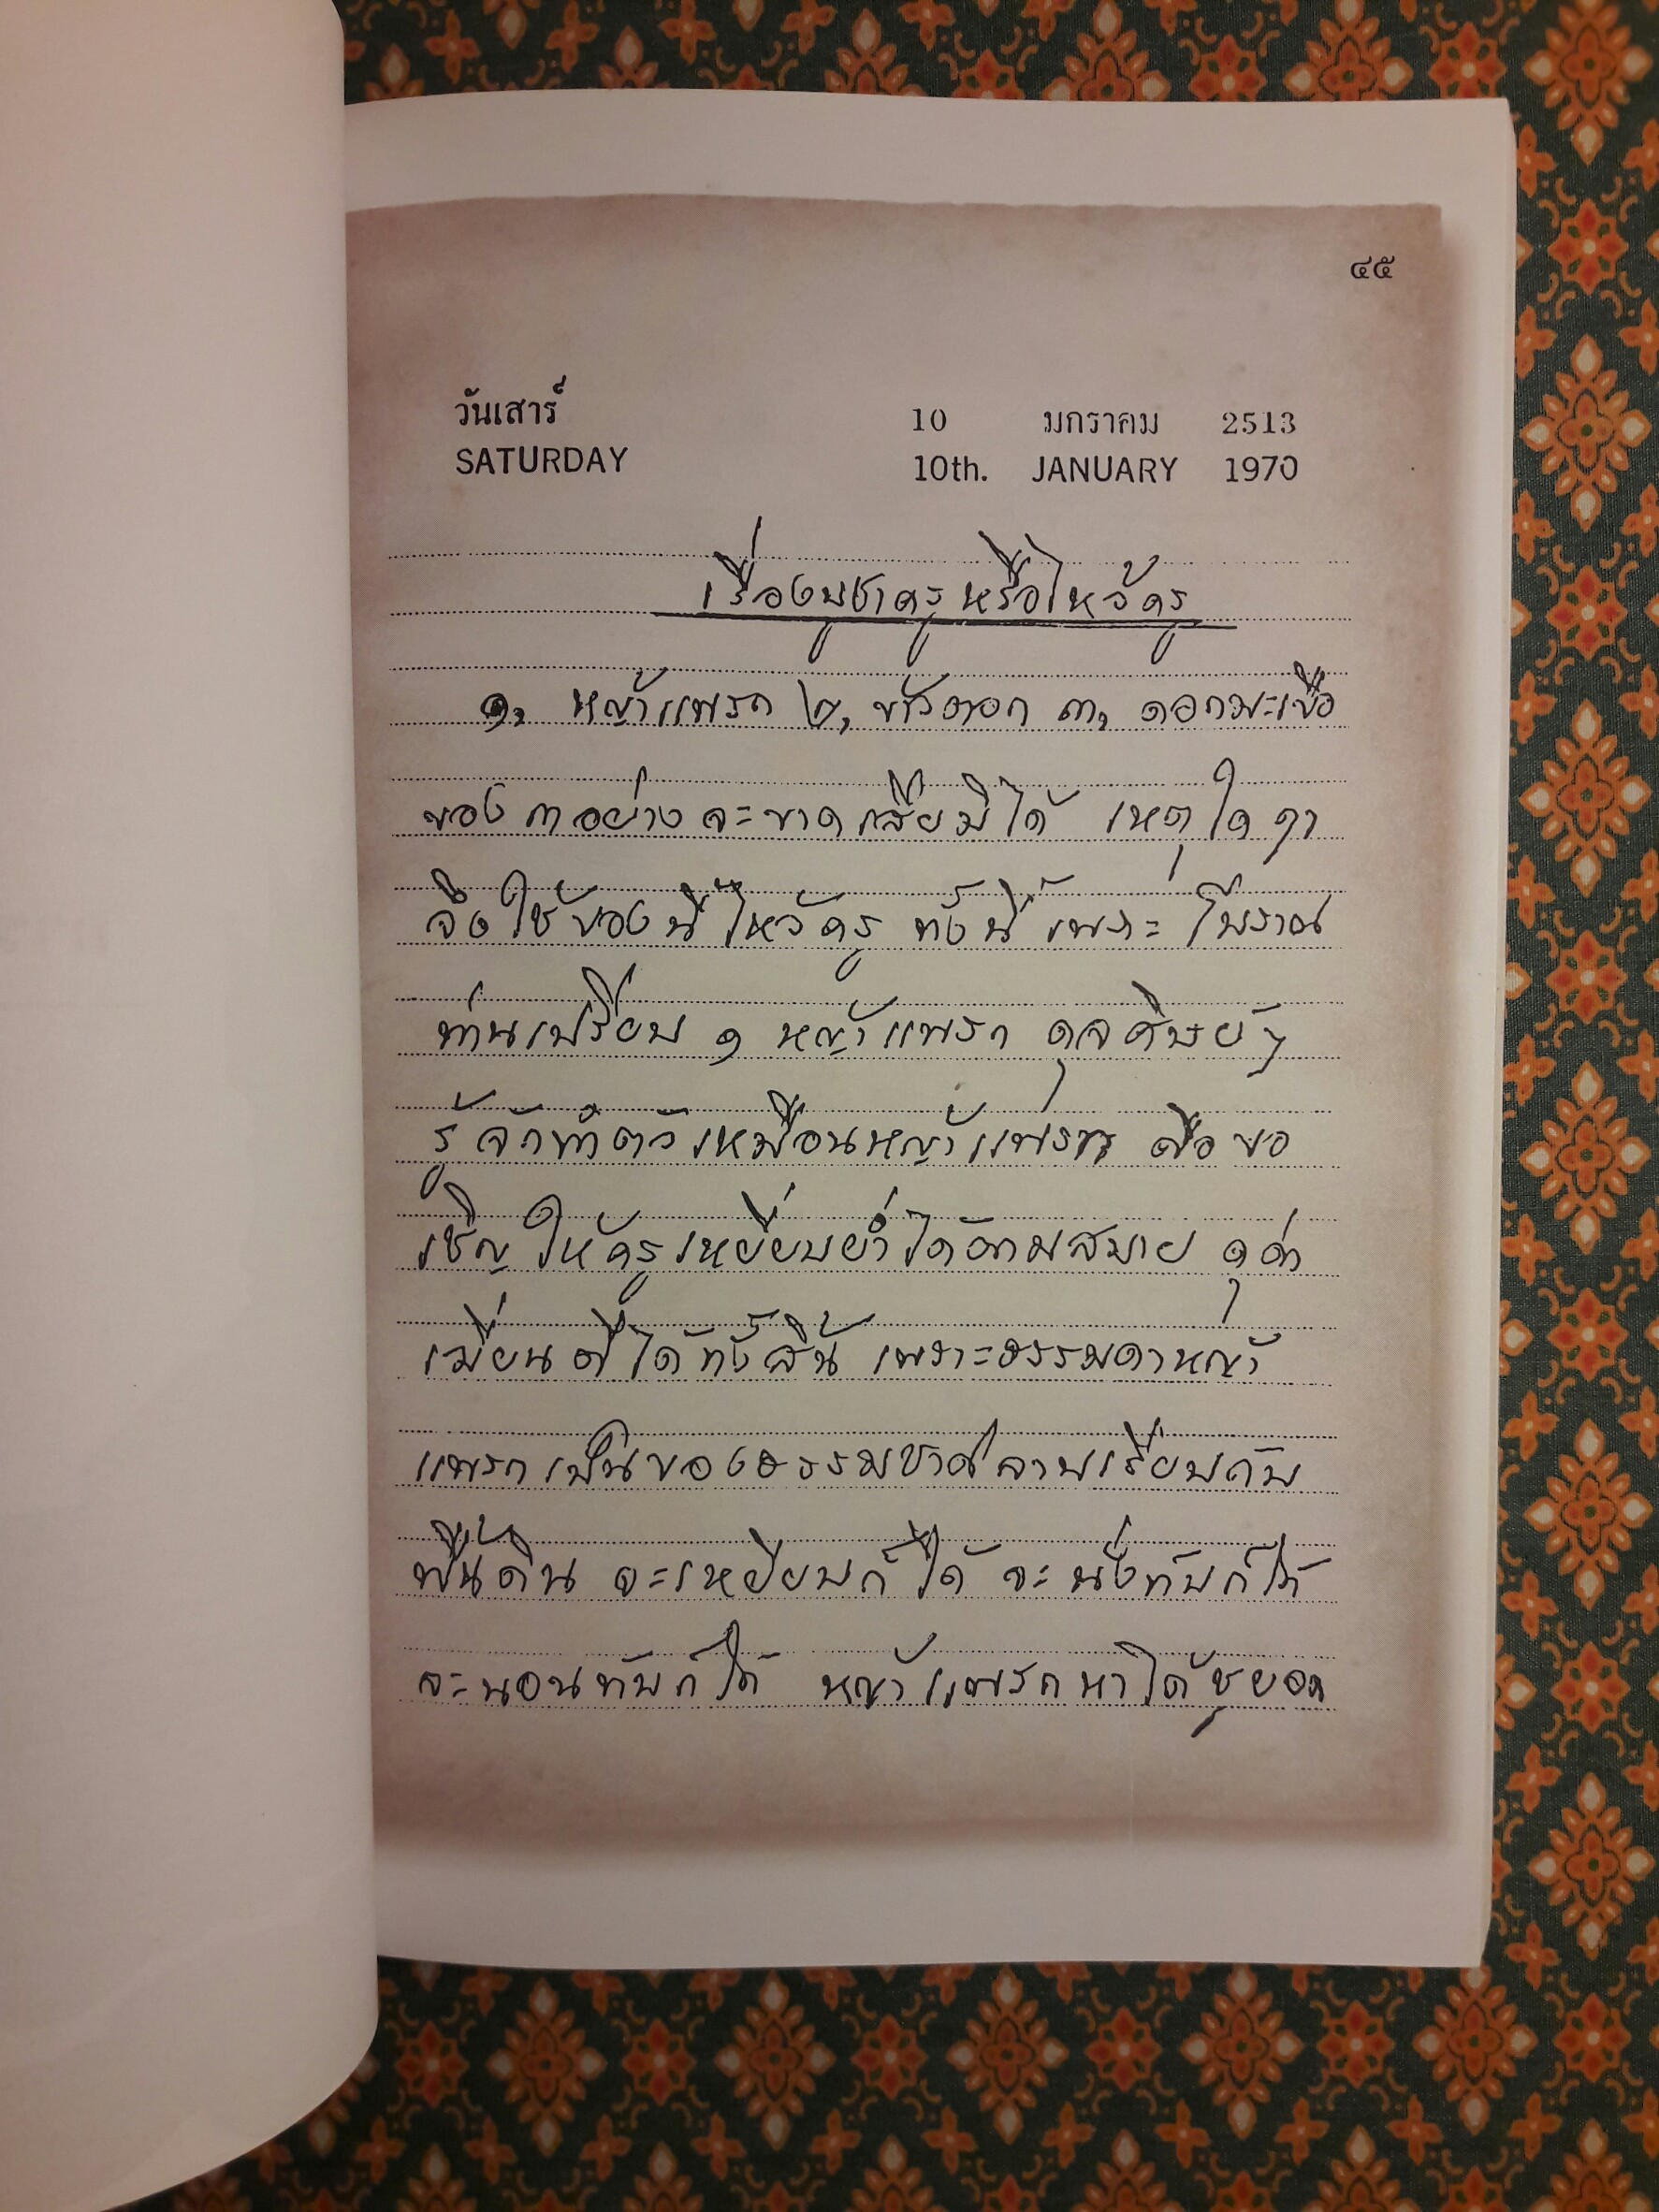 ๔๕
วันเสาร์ 10 มกราคม 2513
SATURDAY 10th. JANUARY 1970
เรื่องบูชาครูหรือไหว้ครู
๑, หญ้าแพรก ๒, ข้าวตอก ๓, ดอกมะเขือ
ของ ๓ อย่าง จะขาดเสียมิได้ เหตุใด ๆ
จึงใช้ของนี้ไหว้ครู ทั้งนี้เพราะโบราณ
ท่านเปรียบ ๑ หญ้าแพรก ดุจศิษย์ๆ
รู้จักทำตัวเหมือนหญ้าแพรก คือขอ
เชิญให้ครูเหยียบย่ำได้ตามสบาย ดุด่า
เฆี่ยนตีได้ทั้งสิ้น เพราะธรรมดาหญ้า
แพรกเป็นของธรรมชาติลาบเรียบกับ
พื้นดิน จะเหยียบก็ได้ จะนั่งทับก็ได้
จะนอนทับก็ได้ หญ้าแพรกหาได้ชูยอด